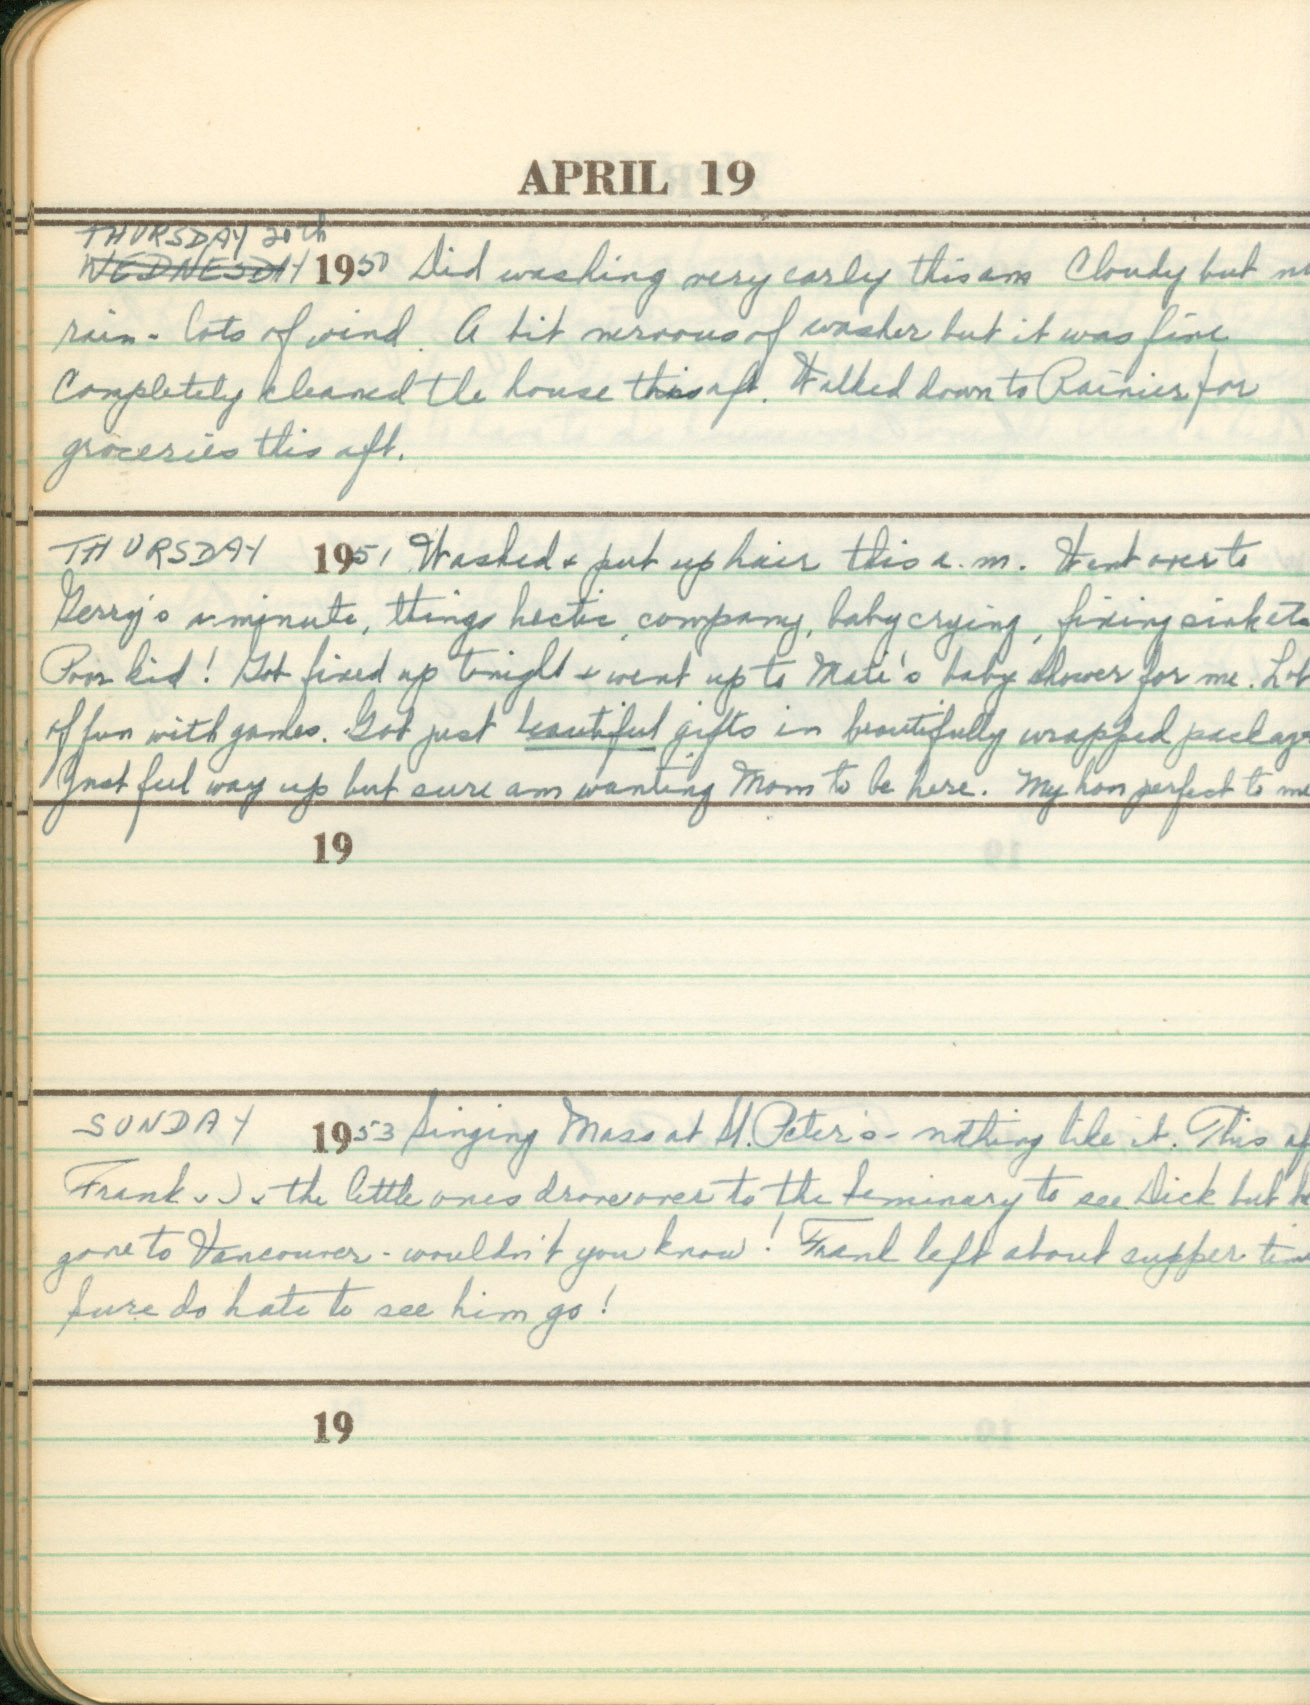 APRIL 19
THURSDAY 20th
WEDNESDAY 1950 Did washing very early this am Cloudy but no
rain - lots of wind. A bit nervous of washer but it was fine
Completely cleaned the house this aft. Walked down to Rainier for
groceries this aft.
THURSDAY 1951 Washed & put up hair this a.m. Went over to
Gerry's a minute, things hectic, company, baby crying, fixing sink etc
Poor kid! Got fixed up tonight & went up to Mate's baby shower for me. Lot
of fun with games. Got just beautiful gifts in beautifully wrapped packag
Just feel way up but sure am wanting Mom to be here. My hon perfect to me
19
SUNDAY 1953 Singing Mass at St. Peter's - nothing like it. This af
Frank, J, & the little ones drove over to the Seminary to see Dick but he
gone to Vancouver - wouldn't you know! Frank left about supper time
Sure do hate to see him go!
19